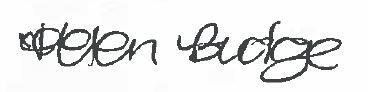 Helen Budge